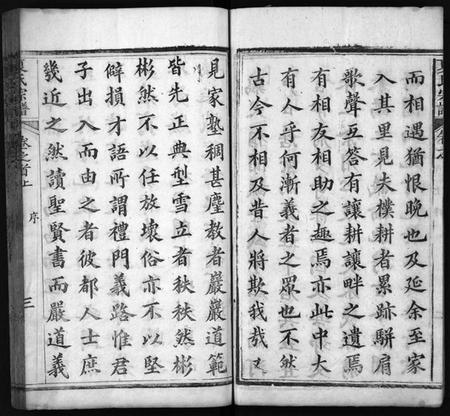 而相遇猶恨晚也及延余至家
入其里見夫樸耕者累跡駢肩
歌聲互答有讓耕讓畔之遺焉
有相友相助之趣焉亦此中大
有人乎何漸義者之眾也不然
古今不相及昔人將欺我哉又
見家塾稠甚塵教者巖巖道範
皆先正典型雪立者秩秩然彬
彬然不以任放壞俗亦不以堅
僻損才語所謂禮門義路惟君
子出入而由之者彼都人士庶
幾近之然讀聖賢書而嚴道義
夏氏宗譜
卷之首上
序
三